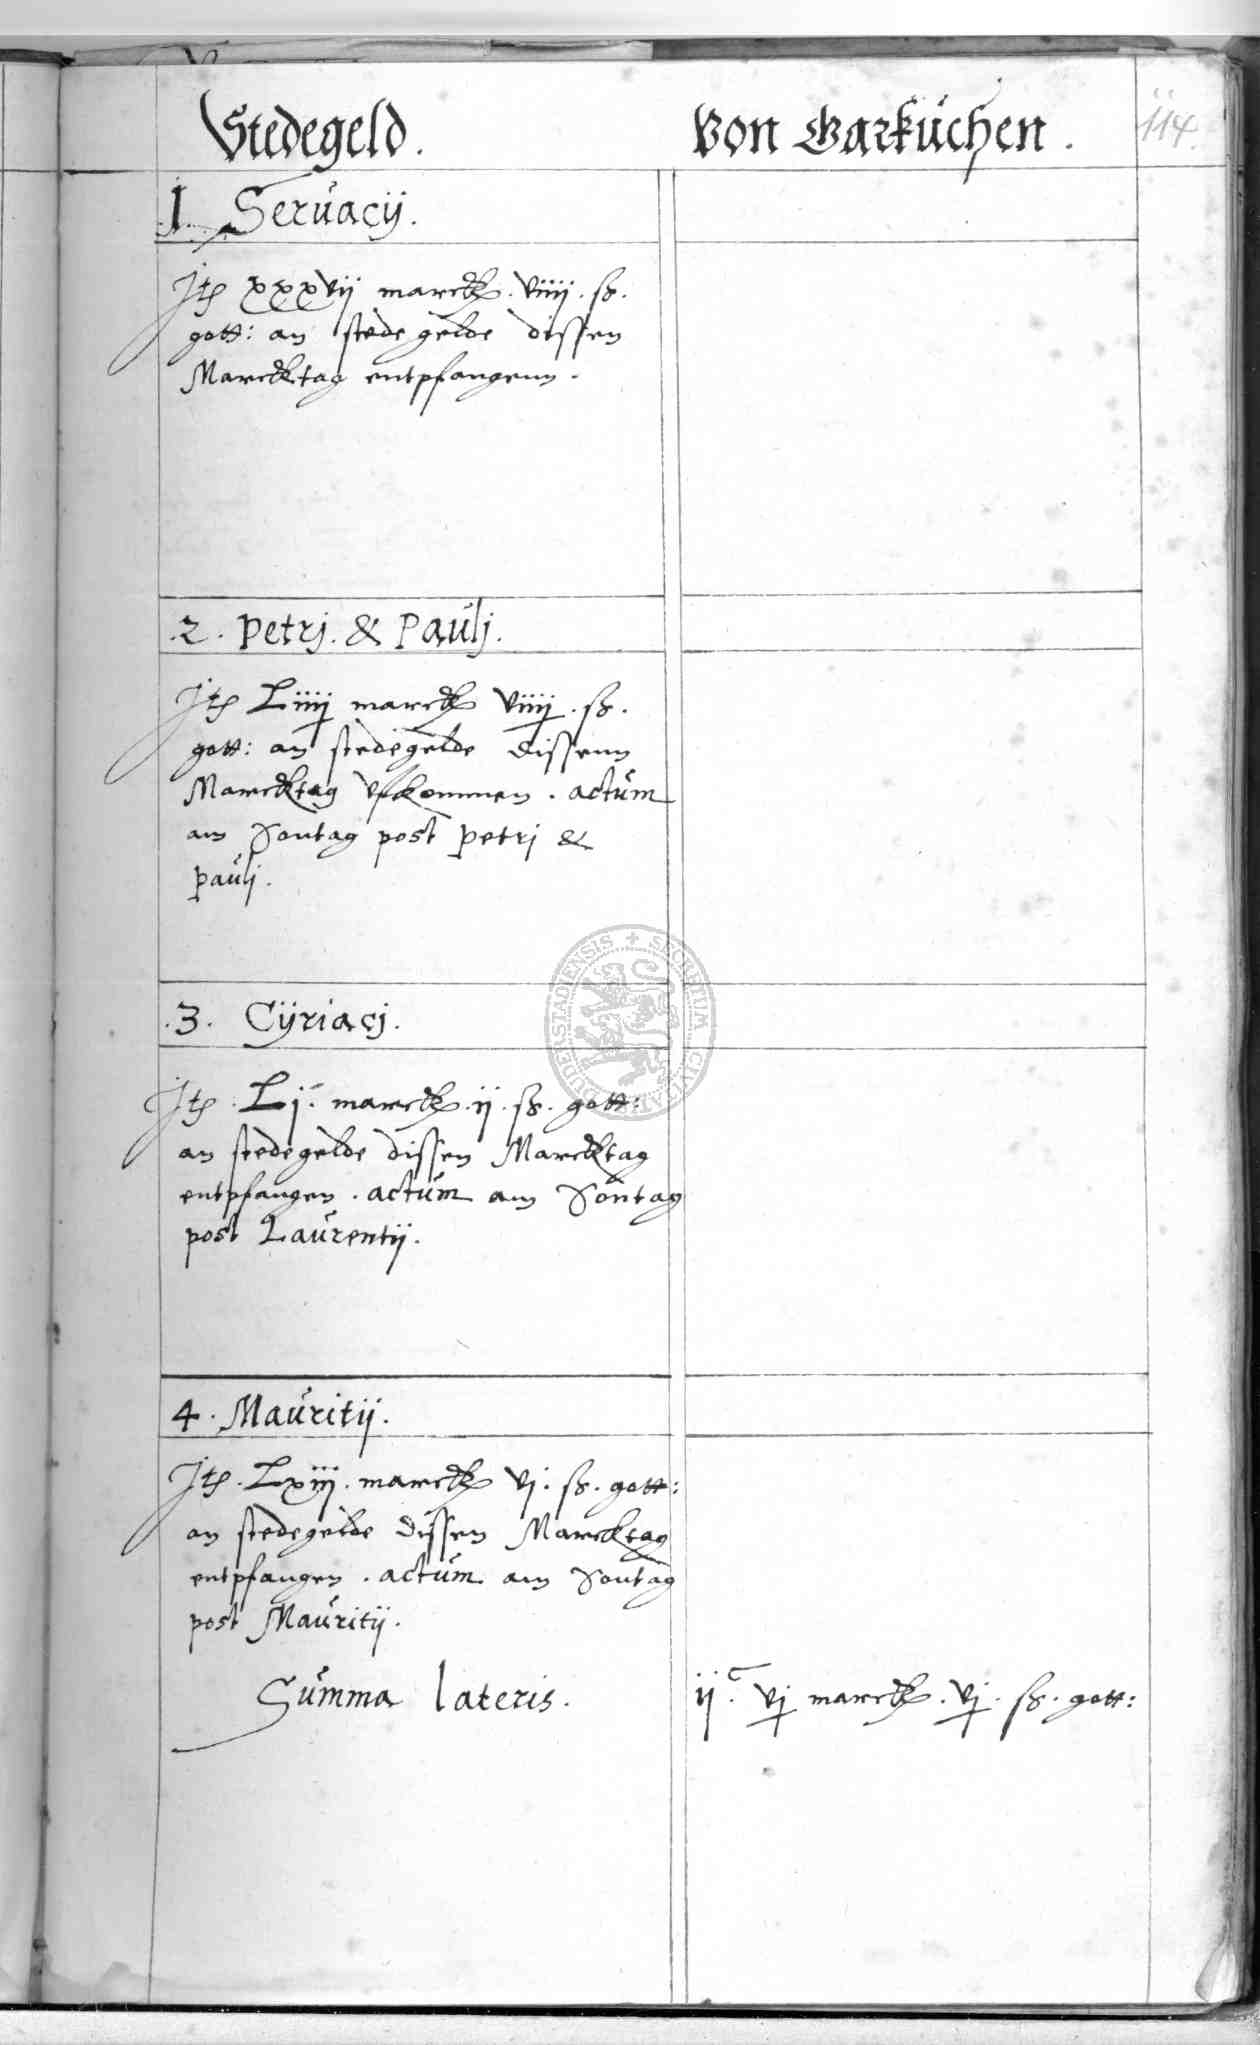 Stedegeld. Von Garküchen. 114.
1. Seruacij.
Jtē xxxvij marck. viiij. ß.
gott: an stede gelde dissen
Marcktag entpfangenn.
.2. Petrj. & Paulj.
Jtē Liiij marck viiij. ß.
gott: an stedegelde dissenn
Marcktag vfkommen. actum
am Sontag post Petrj &
paulj.
.3. Cÿriacj.
Jtē. Lj. marck. ij. ß. gott:
an stedegelde dissen Marcktag
entpfangen. actum am Sontag
post Laurentij.
4. Mauritij.
Jtē. Lxiij. marck vj. ß. gott:
an stedegelde dissen Marcktag
entpfangen. actum am Sontag
post Mauritij.
Summa lateris. ij.c vj marck. vj. ß. gott:
DUDERSTADIENSIS + SECRETUM CIVITATIS